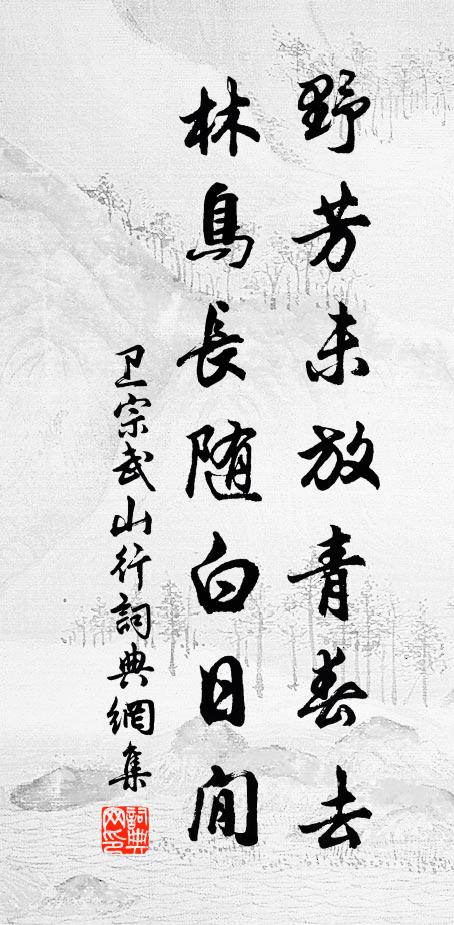 野芳未放青春去
林鳥長随白日閒
卫宗武山行詞典網集
詞典网印